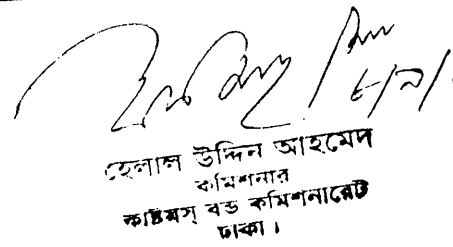 হেলাল উদ্দিন আহমেদ
কমিশনার
কাষ্টমস্ বন্ড কমিশনারেট
ঢাকা।